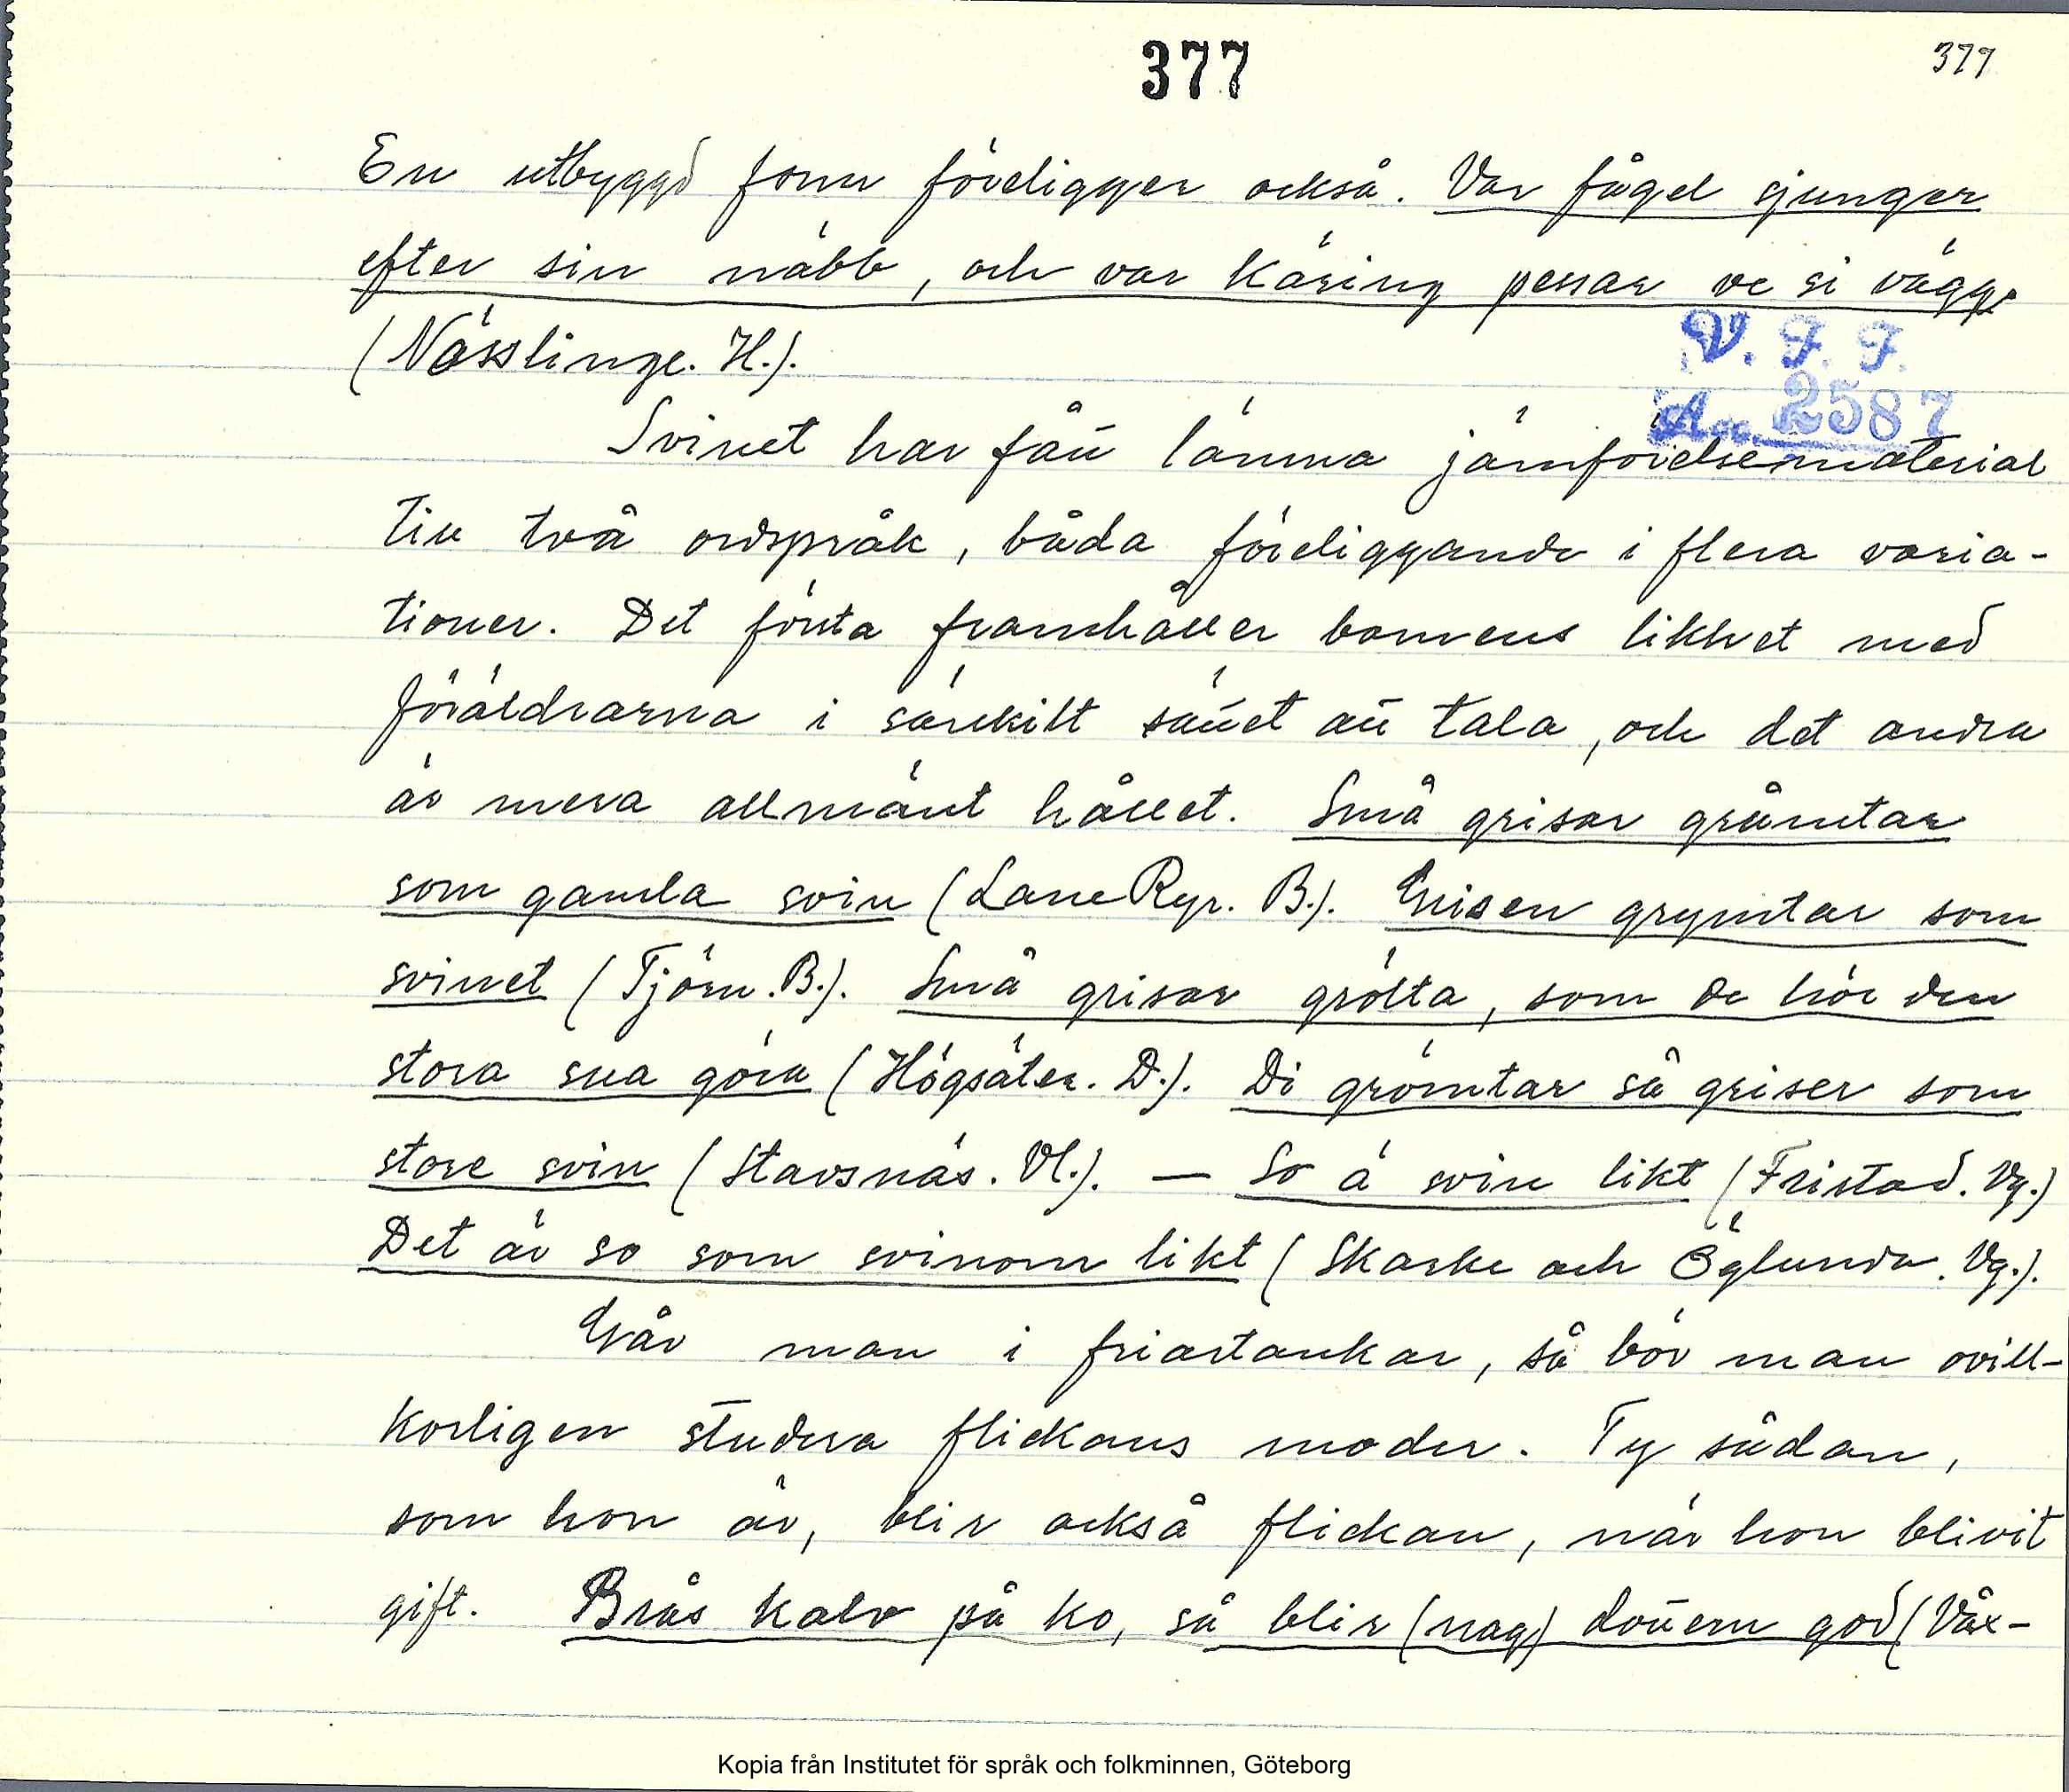 377
377
En utbyggd form föreligger också. Var fågel sjunger
efter sin näbb, och var käring pessar ve si vägge
(Nösslinge. H.).
V. F. F.
Acc. 2587
Svinet har fått lämna jämförelsematerial
till två ordspråk, båda föreliggande i flera varia-
tioner. Det första framhåller barnens likhet med
föräldrarna i särskilt sättet att tala, och det andra
är mera allmänt hållet. Små grisar gråmtar
som gamla svin (Lane Ryr. B.). Grisen grymtar som
svinet (Tjörn. B.). Små grisar grölta, som de hör den
stora sua göra (Högsäter. D.). Di grömtar så griser som
store svin (Stavsnäs. Vl.). — So ä svin likt (Fristad. Vg.)
Det är so som svinom likt (Skarke och Öglunda. Vg.).
Går man i friartankar, så bör man ovill-
korligen studera flickans moder. Ty sådan,
som hon är, blir också flickan, när hon blivit
gift. Brås kalv på ko, så blir (nag) dottern god (Väx-
Kopia från Institutet för språk och folkminnen, Göteborg